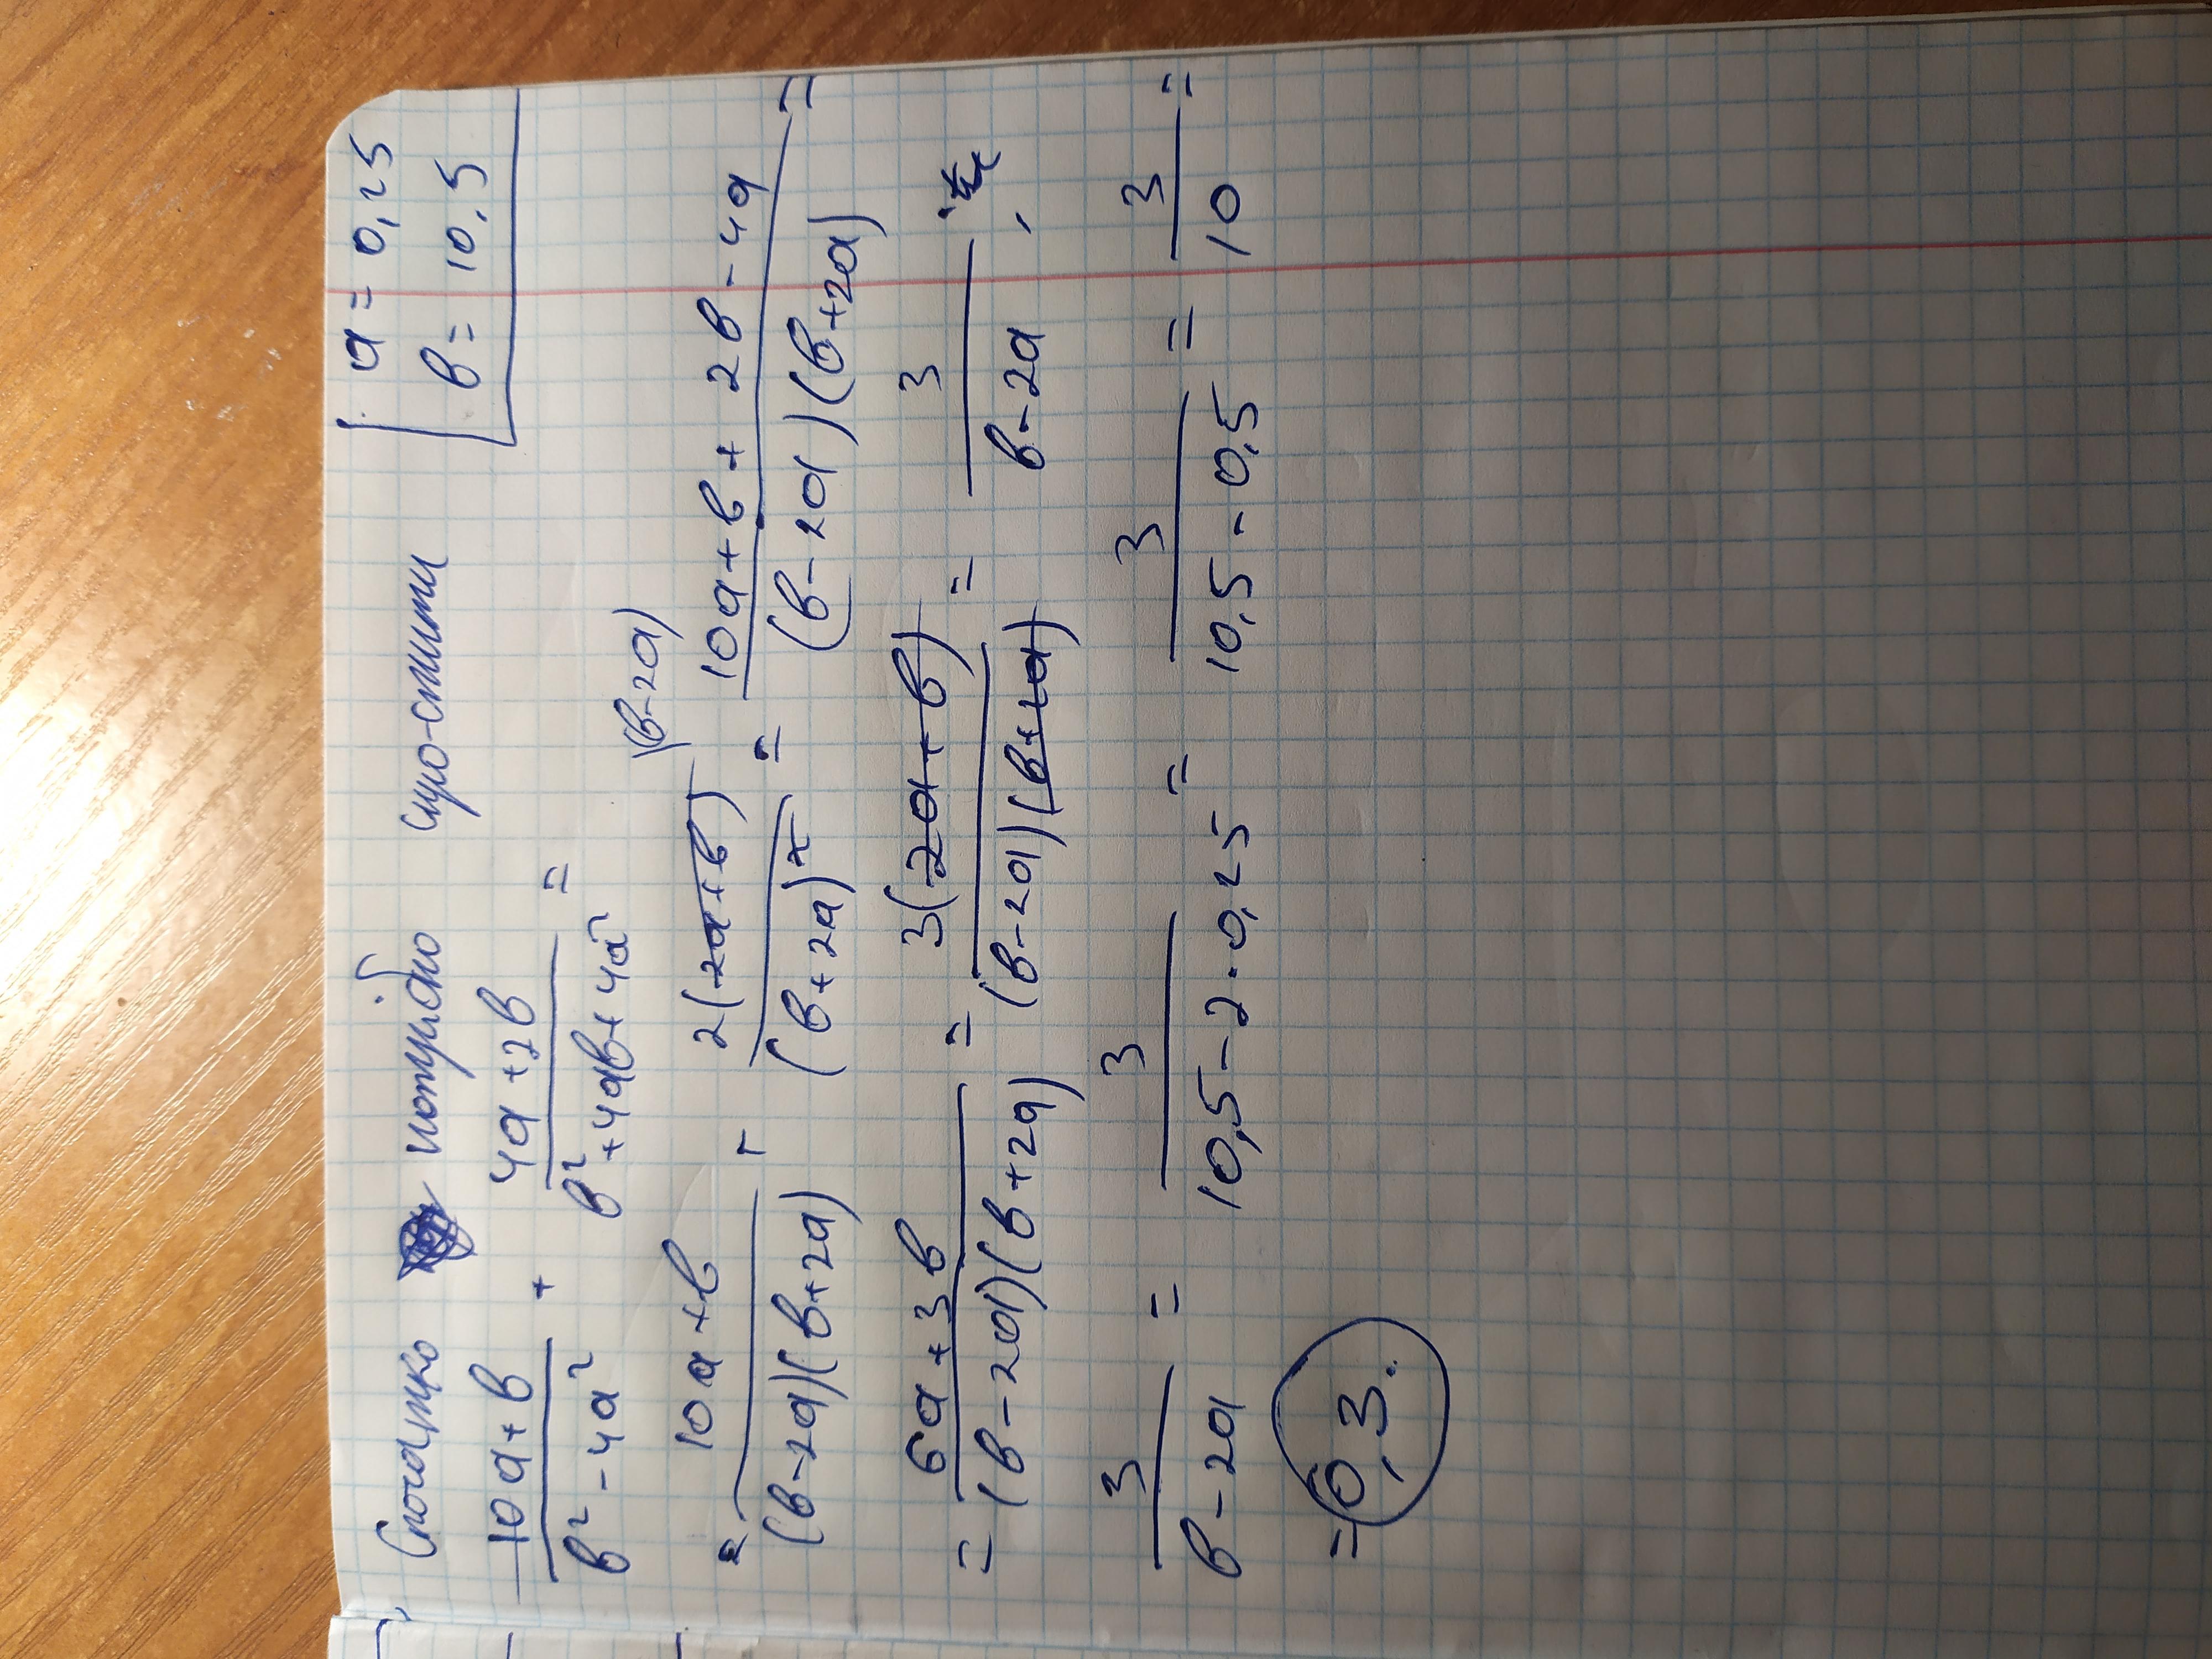 Спочатку потрібно спро-стити
a = 0,25
b = 10,5
(10a+b)/(b² - 4a²) + (4a+2b)/(b²+4ab+4a²) =
= (10a+b)/((b-2a)(b+2a)) + 2(2a+b)/(b+2a)² \(b-2a) = (10a+b+2b-4a)/((b-2a)(b+2a)) =
= (6a+3b)/((b-2a)(b+2a)) = 3(2a+b)/((b-2a)(b+2a)) = 3/(b-2a),
3/(b-2a) = 3/(10,5-2·0,25) = 3/(10,5-0,5) = 3/10 =
= 0,3.